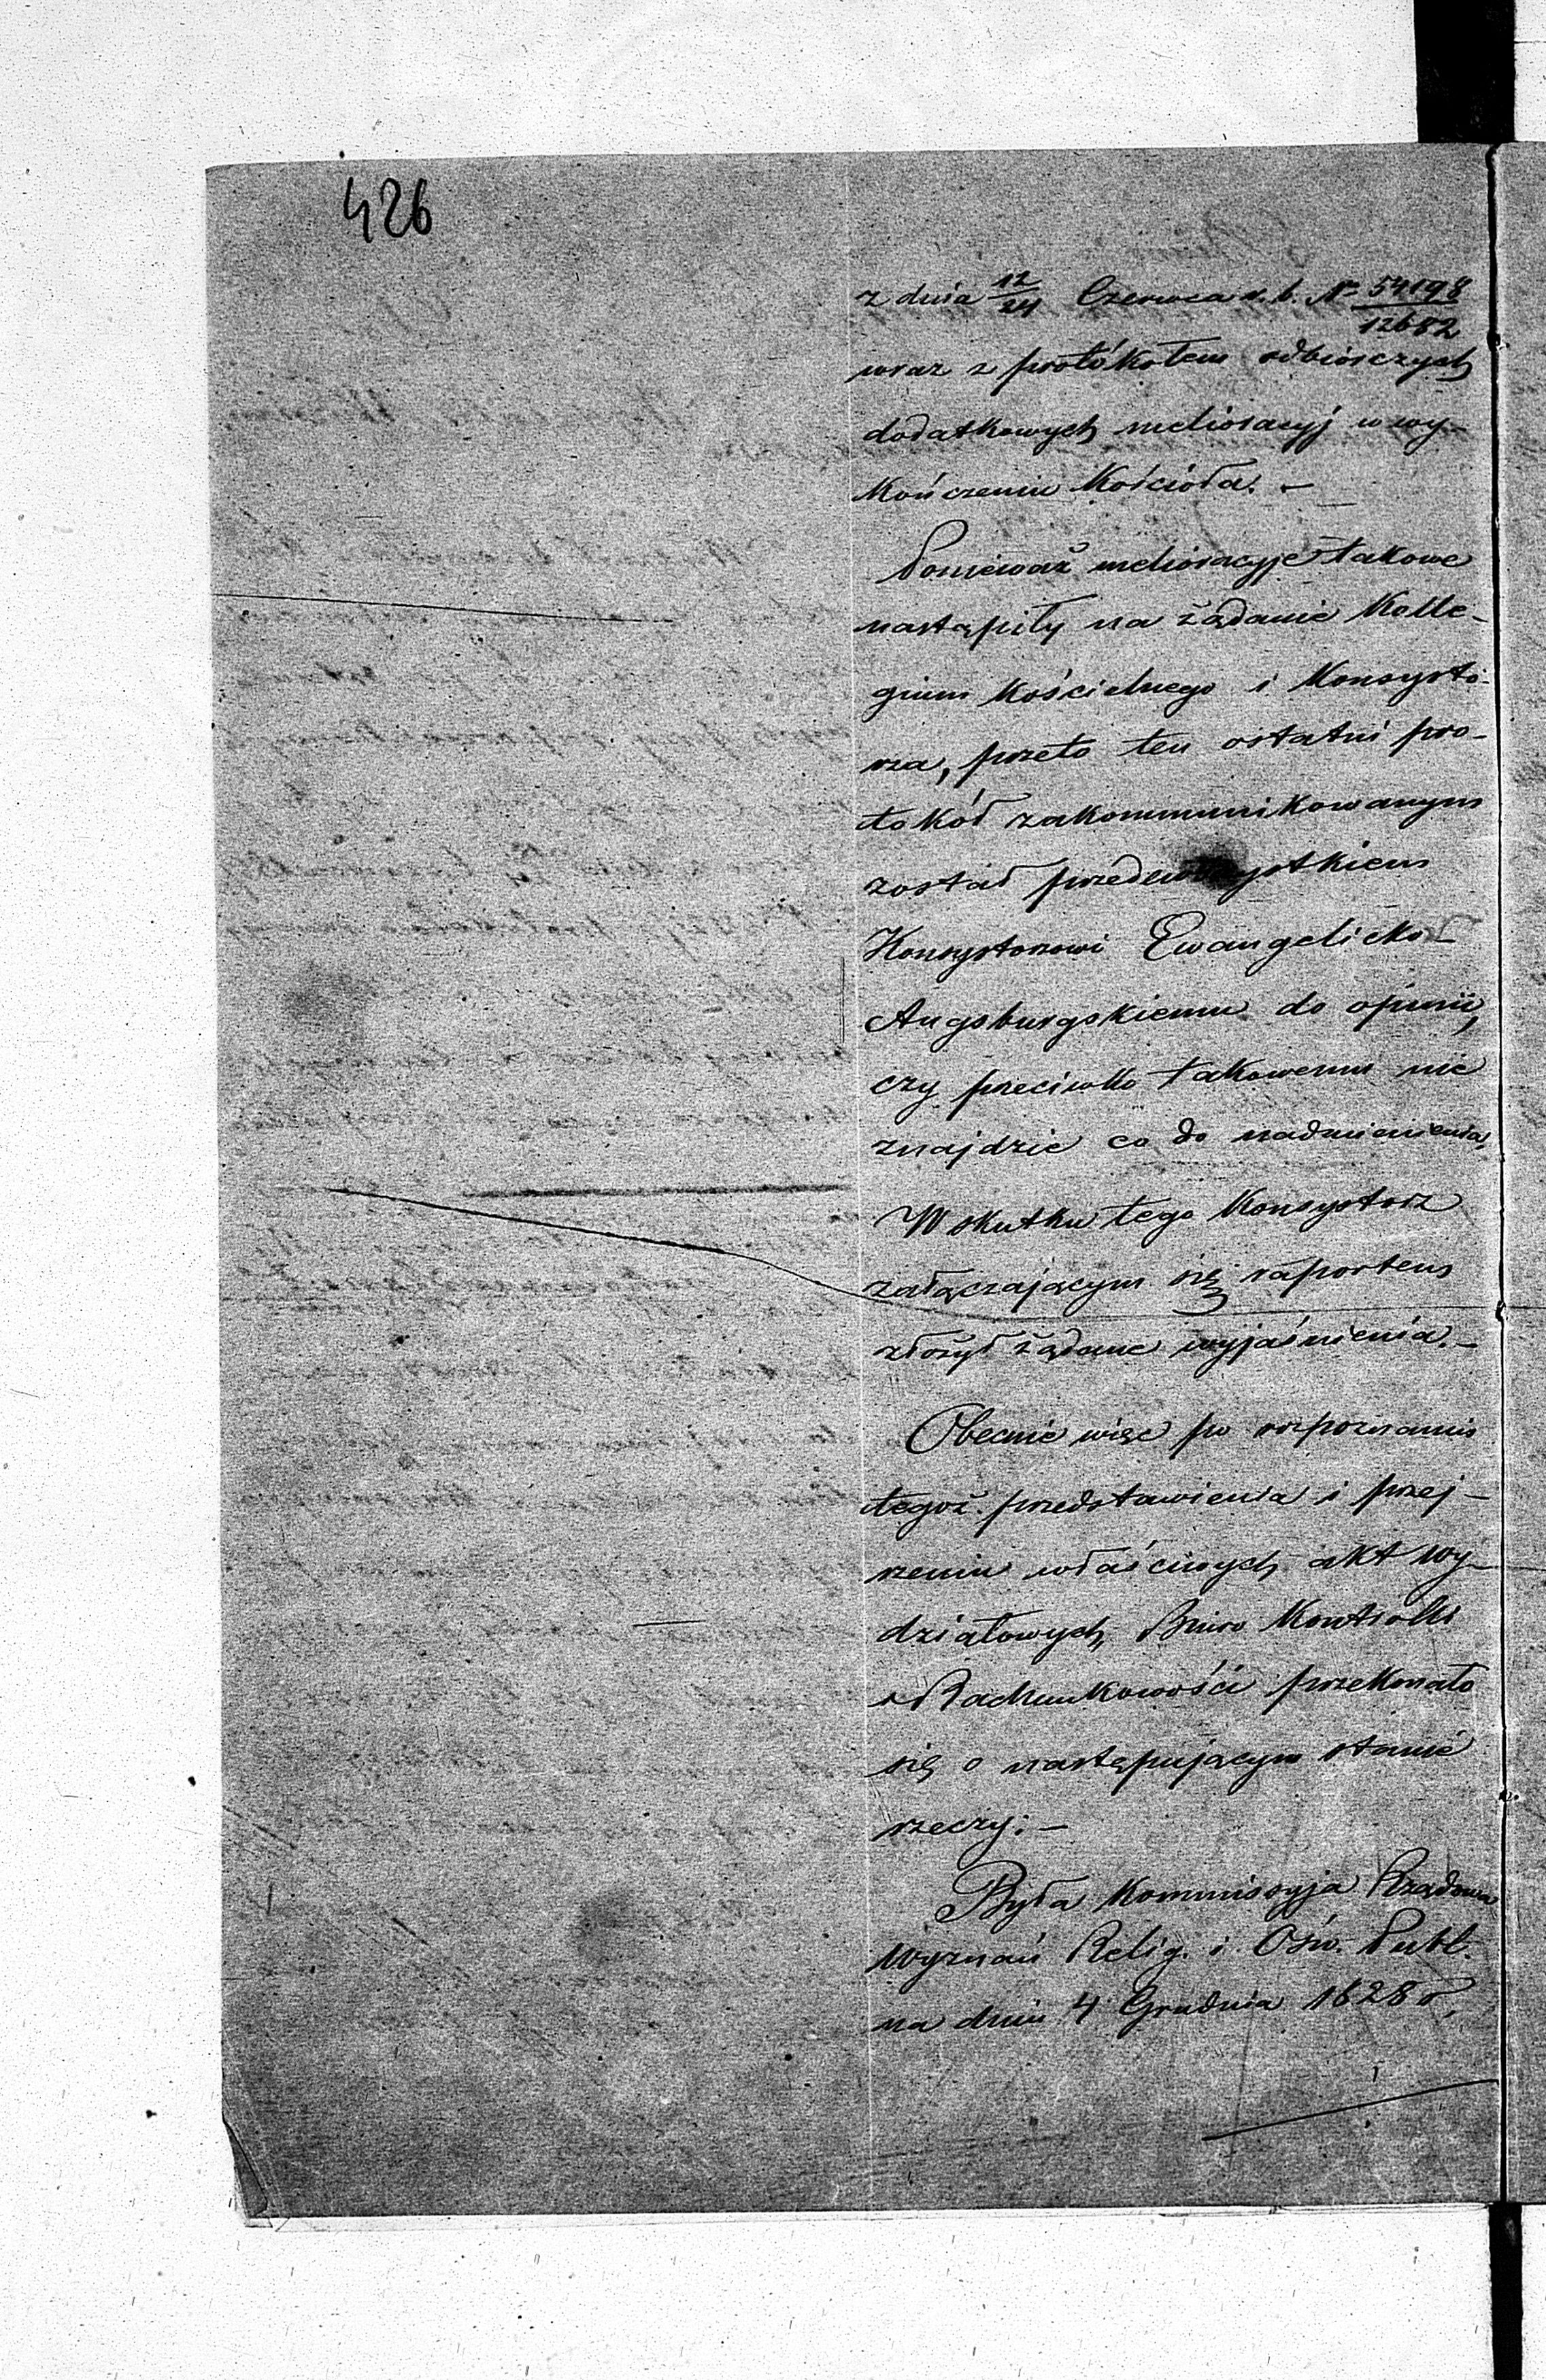 426
z dnia 12/24 Czerwca r. b. No 54198/12682
wraz z protókołem odbiorczych
dodatkowych melioracyj w wy-
kończeniu Kościoła. –
Ponieważ melioracyje takowe
nastąpiły na żądanie Kolle-
gium Kościelnego i Konsysto-
rza, przeto ten ostatni pro-
tokół zakommunikowanym
został przedewszystkiem
Konsystorzowi Ewangelicko-
Augsburgskiemu do opinii,
czy przeciwko takowemu nie
znajdzie co do nadmienienia,
W skutku tego Konsystorz
załączającym się raportem
złożył żądane wyjaśnienia. –
Obecnie więc po rozpoznaniu
tegoż przedstawienia i przej-
rzeniu właściwych akt wy-
działowych, Biuro Kontrolli
i Rachunkowości przekonało
się o następującym stanie
rzeczy: –
Była Kommissyja Rządowa
Wyznań Relig. i Ośw. Publ.
na dniu 4 Grudnia 1828 r.